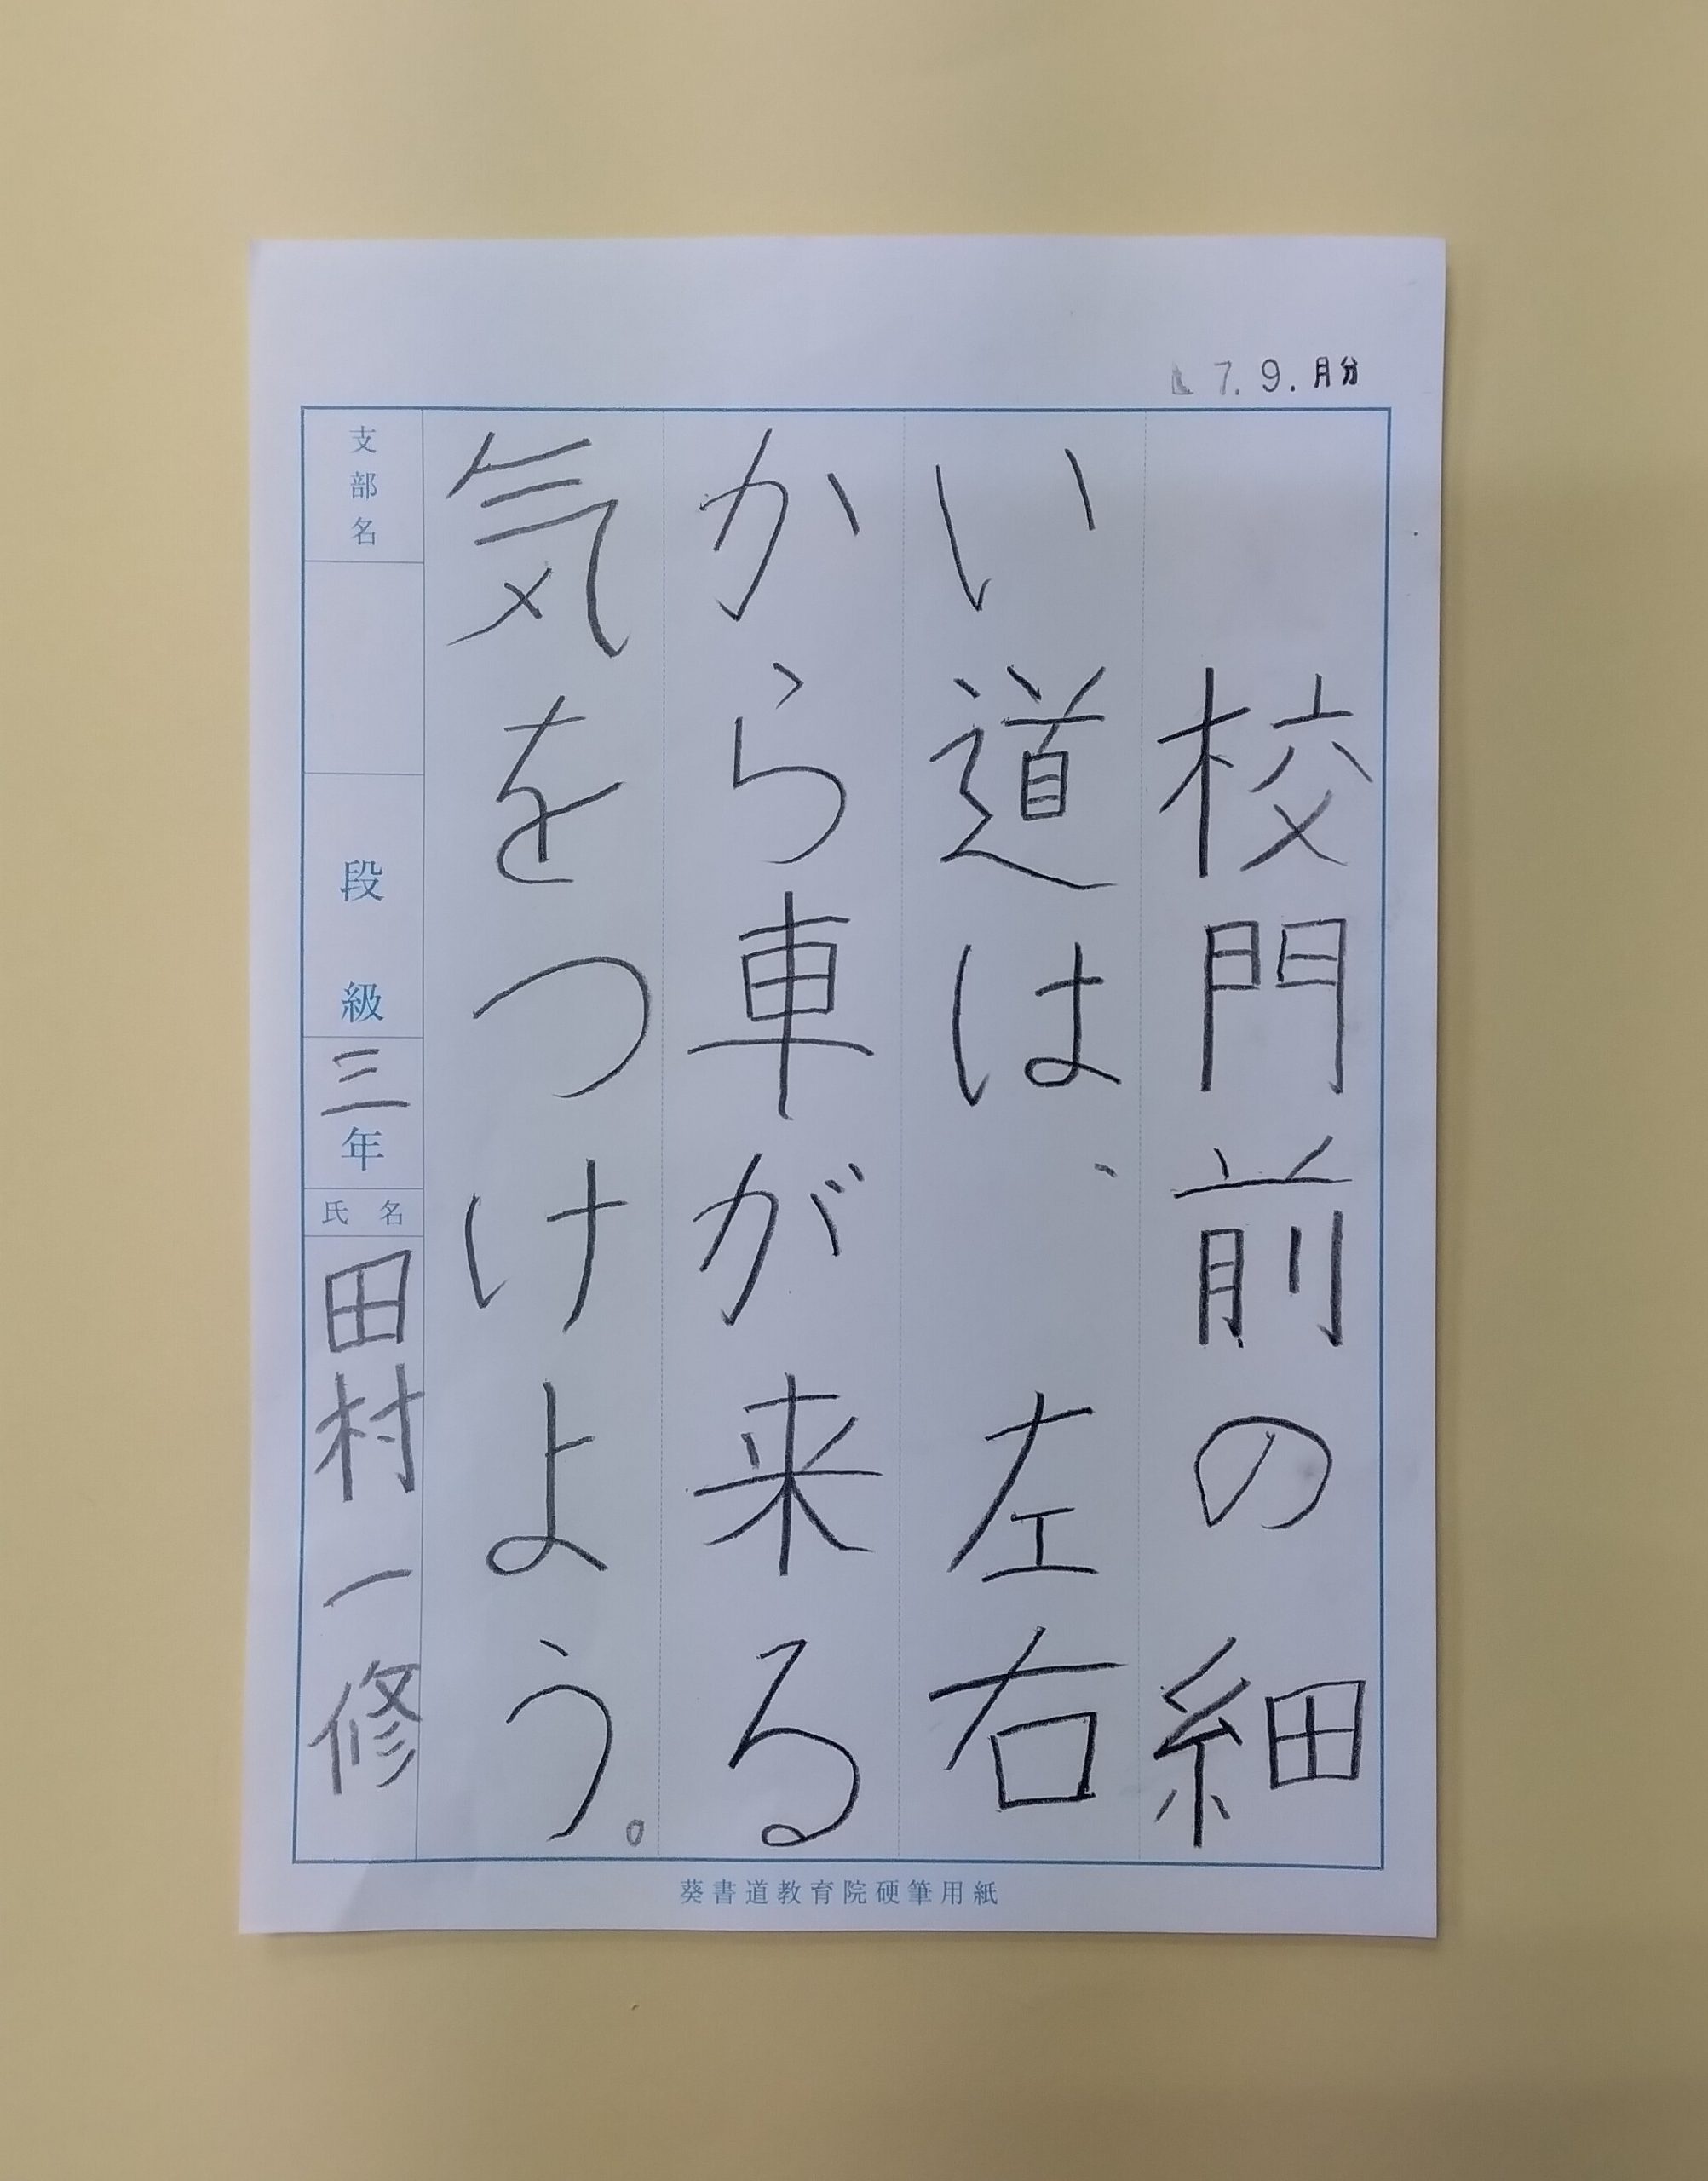 7.9.月分
校門前の細
い道は、左右
から車が来る
気をつけよう。
支部名
段級
三年
氏名
田村一修
葵書道教育院硬筆用紙